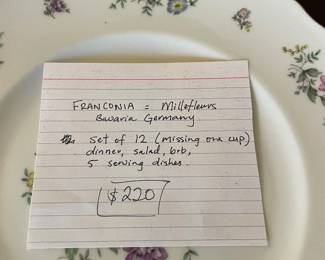 FRANCONIA = Millefleurs
Bavaria Germany
set of 12 (missing one cup)
dinner, salad, b+b,
5 serving dishes.
$220